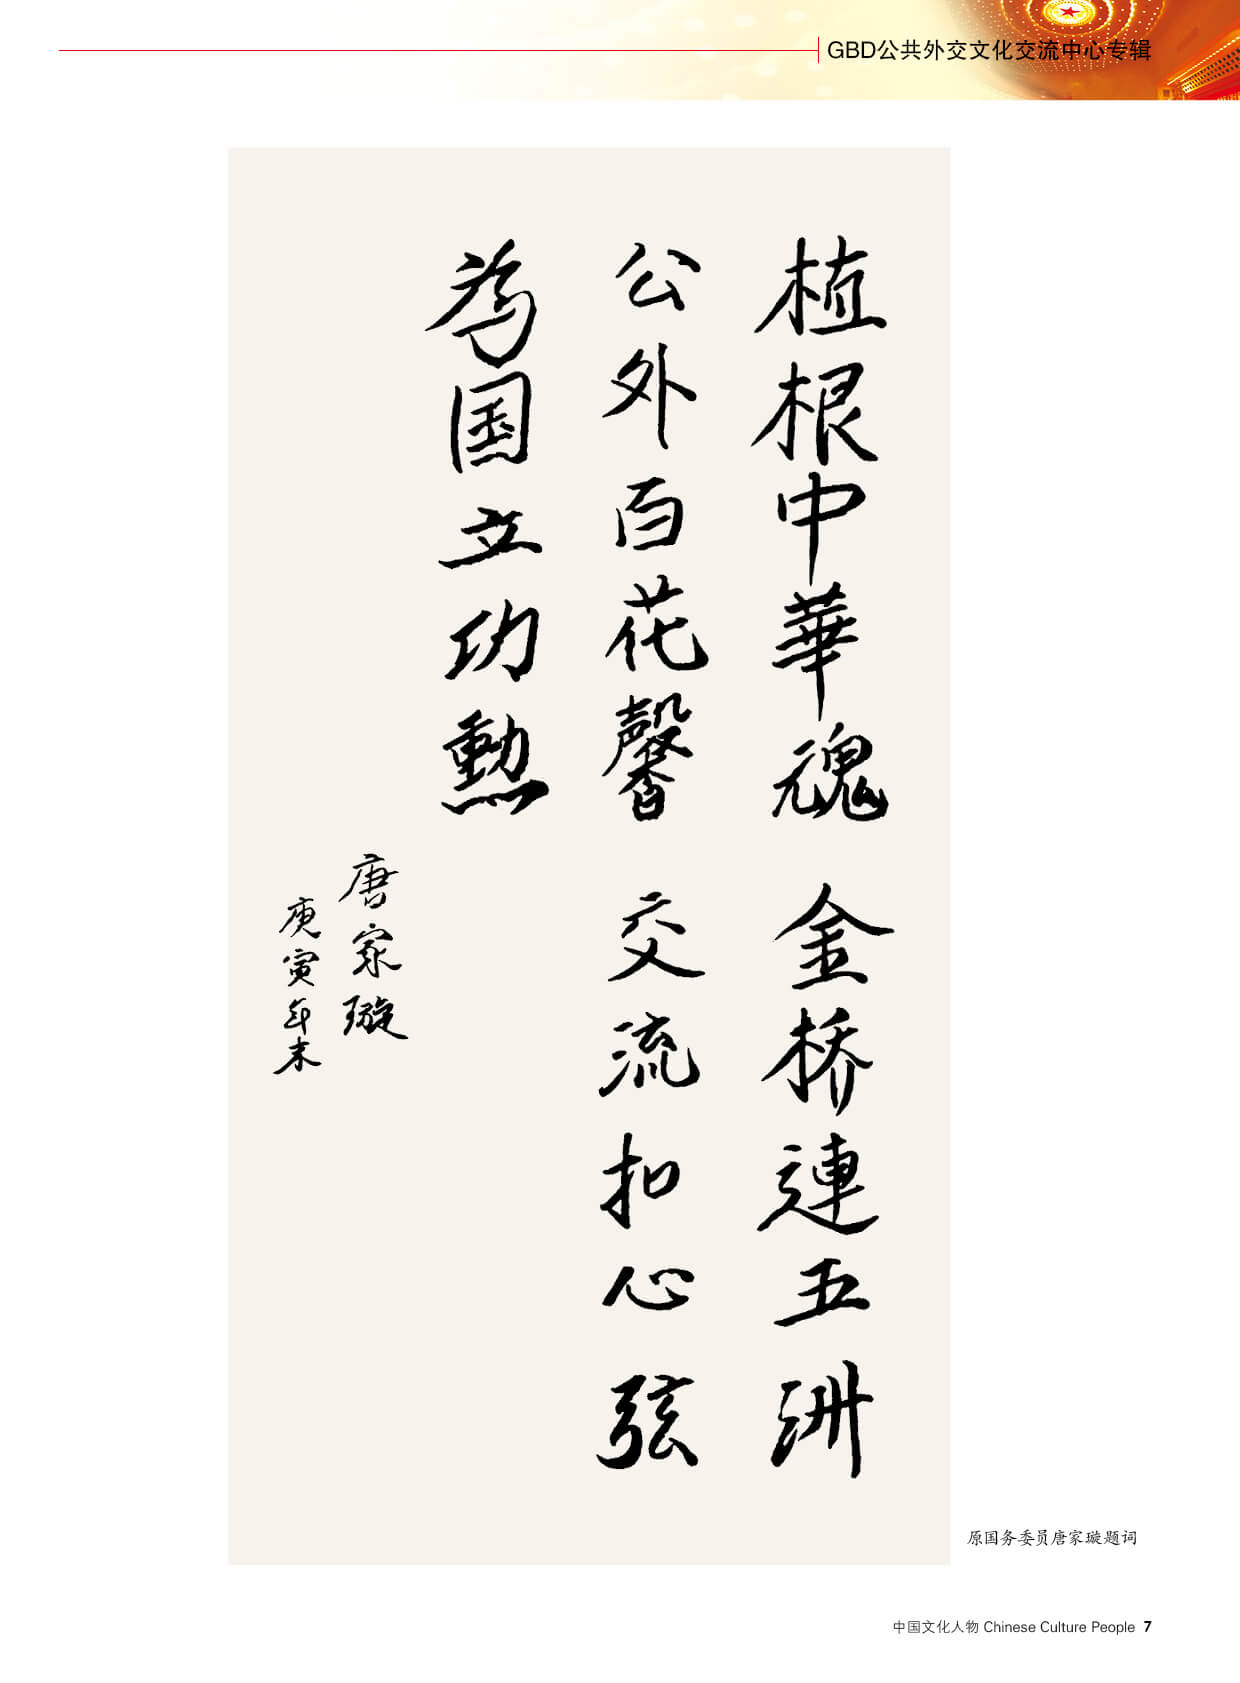 GBD公共外交文化交流中心专辑
植根中華魂 金桥連五洲
公外百花馨 交流扣心弦
為国立功勲
唐家璇
庚寅年末
原国务委员唐家璇题词
中国文化人物 Chinese Culture People 7